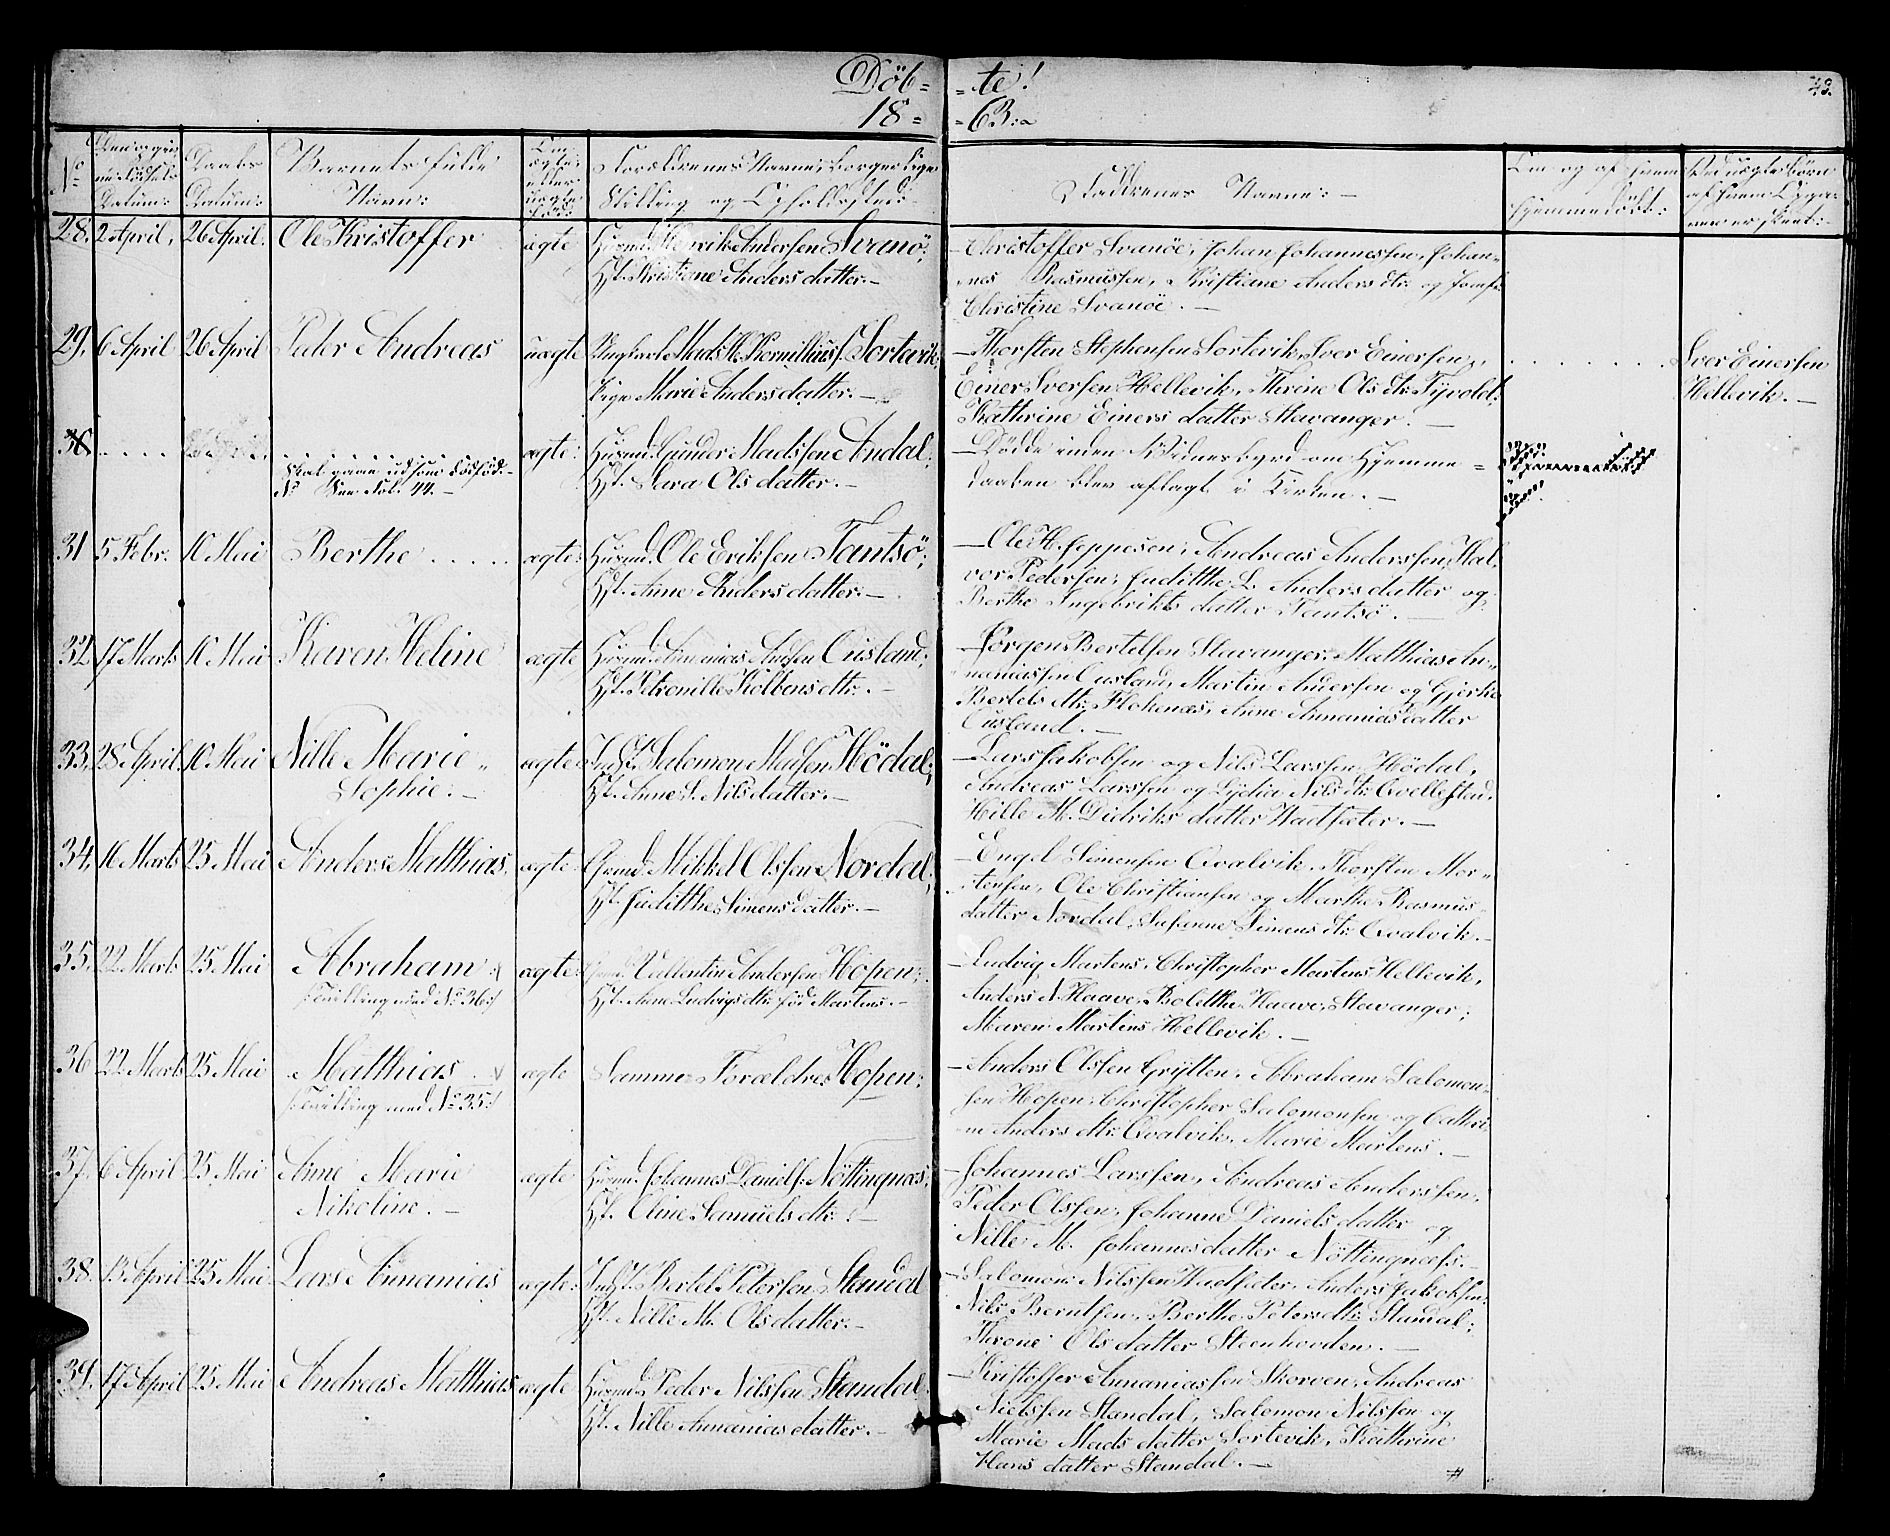 Döb= =te!
18= =63:
43.
No
Daabs Datum:
Barnets fulde Navn:
Om ægte eller uægte
Forældrenes Navne, borgerlige Stilling og Opholdssted:
Faddrenes Navne:
Om og af hvem hjemmedöbt:
28. 2 April, 26 April. Ole Kristoffer ægte Huusmd. Henrik Andersen Svanö;
Hst. Kristiane Andersdatter.—
—Christoffer Svanöe, Johan Johannessen, Johan=
=nes Rasmussen, Kristiane Andersdtr. og Jomf.
Christine Svanöe.—
29. 6 April 26 April Peder Andreas uægte Ungkarl Mads H. Kornilliusf. Sortevik;
Pige Marie Andersdatter.—
—Thorsten Stephensen Sortevik, Iver Einersen,
Einer Iversen Hellevik, Thrine Olsdtr. Tyvold,
Kathrine Einersdatter Stavanger.—
Iver Einersen
Hellevik.—
30. ægte: Huusmd. Gunder Madssen Andal;
Hst. Sara Olsdatter.—
Skal gaae ud som dödföd.
See Fol. 44.—
—Dödde inden Vidnesbyrd om Hjemme=
daaben blev aflagt i Kirken.—
31 5 Febr. 10 Mai Berthe ægte: Huusmd. Ole Eriksen Tantsö;
Hst. Anne Andersdatter.—
—Ole H. Jeppesen, Andreas Anderssen, Hal.
vor Pedersen, Judithe L. Andersdatter og
Berthe Ingebriktsdatter Tantsö.—
32 17 Marts 10 Mai Karen Heline ægte Huusmd. Ananias Andsen Ousland;
Hst. Petronille Kolbensdtr.—
—Jörgen Bertelsen Stavanger, Matthias An=
naniassen Ousland, Martin Andersen og Gjertie
Bertelsdtr. Flokenæs, Anne Annaniasdatter
Ousland.—
33. 28 April 10 Mai Nille Marie
Sophie.—
ægte Indst. Salomon Madsen Hödal;
Hst. Anne S. Nilsdatter.—
—Lars Jakobsen og Nils Larssen Hödal,
Andreas Larssen og Lydia Nilsdtr. Qvellestad,
Hille M. Didriksdatter Vadsæter.—
34. 16 Marts 25 Mai Anders Matthias ægte Huusmd. Mikkel Olssen Nordal;
Hst. Judithe Simensdatter.—
—Engel Simensen Qvalvik, Thorsten Mor=
tensen, Ole Christiansen og Marthe Rasmus=
datter Nordal, Susanne Simensdtr. Qvalvik.—
35. 22 Marts 25 Mai Abraham
Tvilling med No 36
ægte: Vallentin Andersen Hopen;
Hst. Anne Ludvigsdtr. föd Martens.—
—Ludvig Martens, Christopher Martens Hellevik,
Anders N. Haave, Bolette Haave, Stavanger;
Maren Martens Hellevik.—
36 22 Marts 25 Mai Matthias
Tvilling med No 35
ægte Samme Forældre Hopen;
—Anders Olssen Grytten, Abraham Salomon=
sen Hopen, Christopher Salomonsen og Cathri=
ne Andersdtr. Qvalvik, Marie Martens.—
37. 6 April 25 Mai Anne Marie
Nikoline.—
ægte Huusmd. Johannes Danielsf. Nöttingnæs;
Hst. Oline Samuelsdtr.—
—Johannes Larssen, Andreas Anderssen,
Peder Olssen, Johanne Danielsdatter og
Nille M. Johannesdatter Nöttingnæss.—
38. 13 April 25 Mai Lars Annanias ægte: Indst. Bertel Petersen Standal
Hst. Nille M. Olsdatter.—
—Salomon Nilssen Vadsæter, Anders Jakobsen,
Nils Berntsen, Berthe Petersdtr. Standal;
Throne Olsdatter Steenhovden.—
39. 17 April 25 Mai Andreas Matthias ægte Huusmd. Peder Nilssen Standal;
Hst. Nille Annaniasdatter.—
—Kristoffer Annaniassen Skorven, Andreas
Nielssen Standal, Salomon Nilssen og
Marie Madsdatter Sortevik, Kathrine
Hansdatter Standal.—